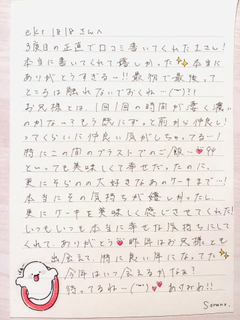 ekr1818さんへ
3度目の正直で口コミ書いてくれたよさん!
本当に書いてくれて嬉しかった✨本当に
ありがとうすぎるー!!最初で最後って
ところは触れないでおくね…(˘˘)!
お兄様とは、1回1回の時間が凄く濃い
のかなーもう感じにずっと前から仲良し!
ってくらいに仲良い気がしちゃってるー!
特にこの間のブラストでのご飯〜
といっても美味しくて幸せだった。のに、
更にそらのの大好きなあのケーキまで…!
本当にその気持ちが嬉しかったし、
更にケーキを美味しく感じさせてくれた!
いつもいつも本当に幸せな気持ちにして
くれて、ありがとう💕昨年はお兄様とも
出会えて、特に良い年になってた✨
今年はいつ会えるかなぁ?
待ってるね…(˘˘)💕 ありみお!!